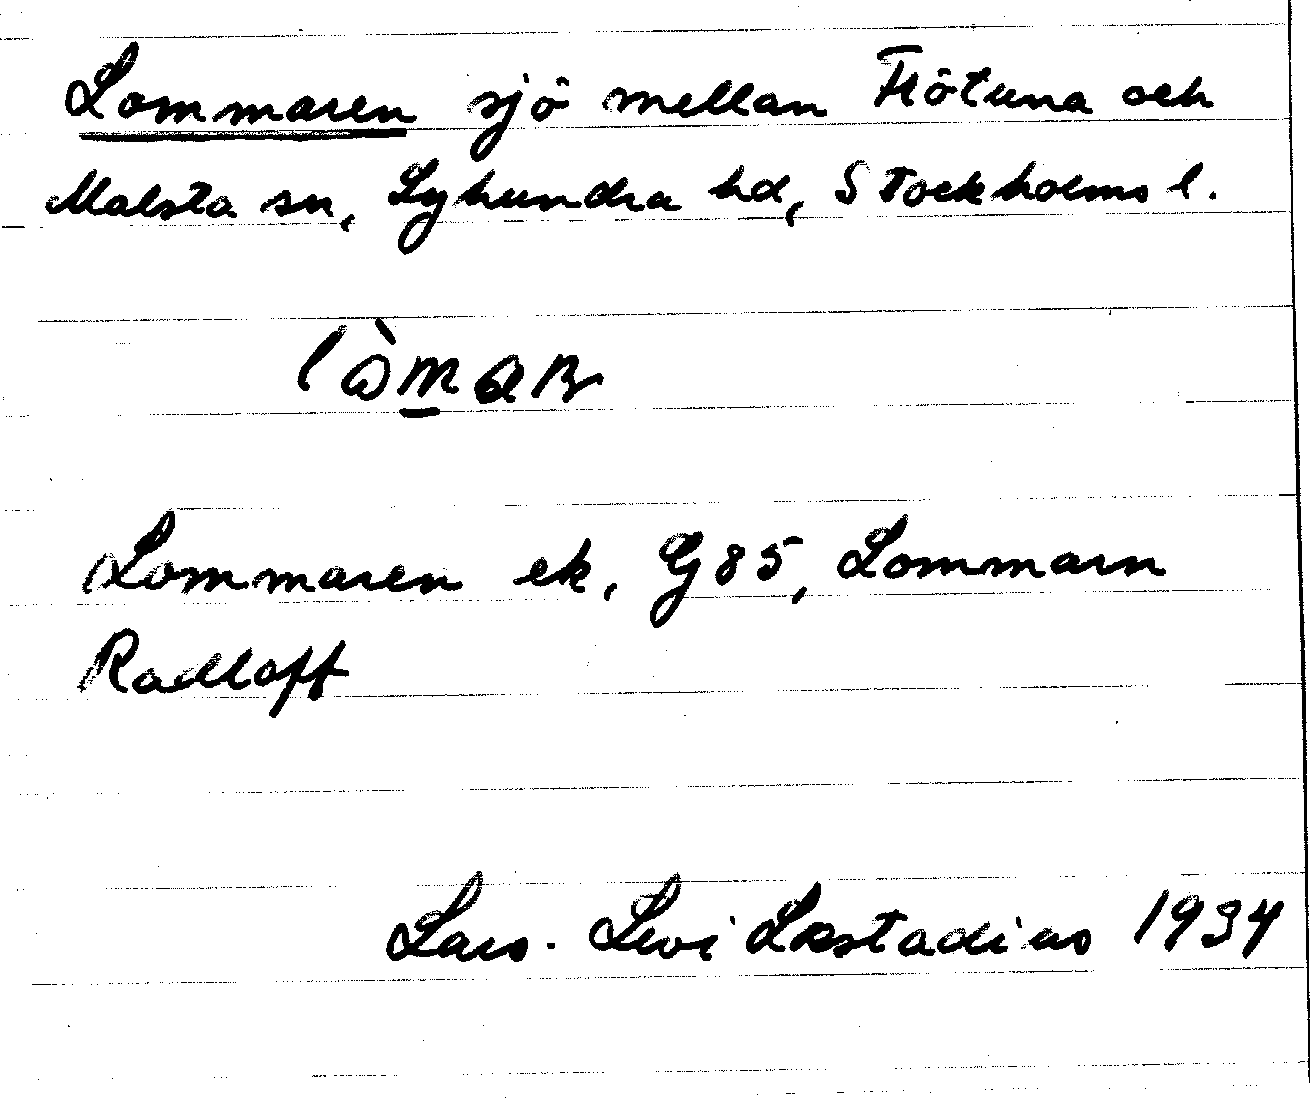 Lommaren sjö mellan Frötuna och
Malsta sn, Lyhundra hd, Stockholms l.
Lommaren ek. G85, Lommarn
Radloff
Lars-Levi Læstadius 1934